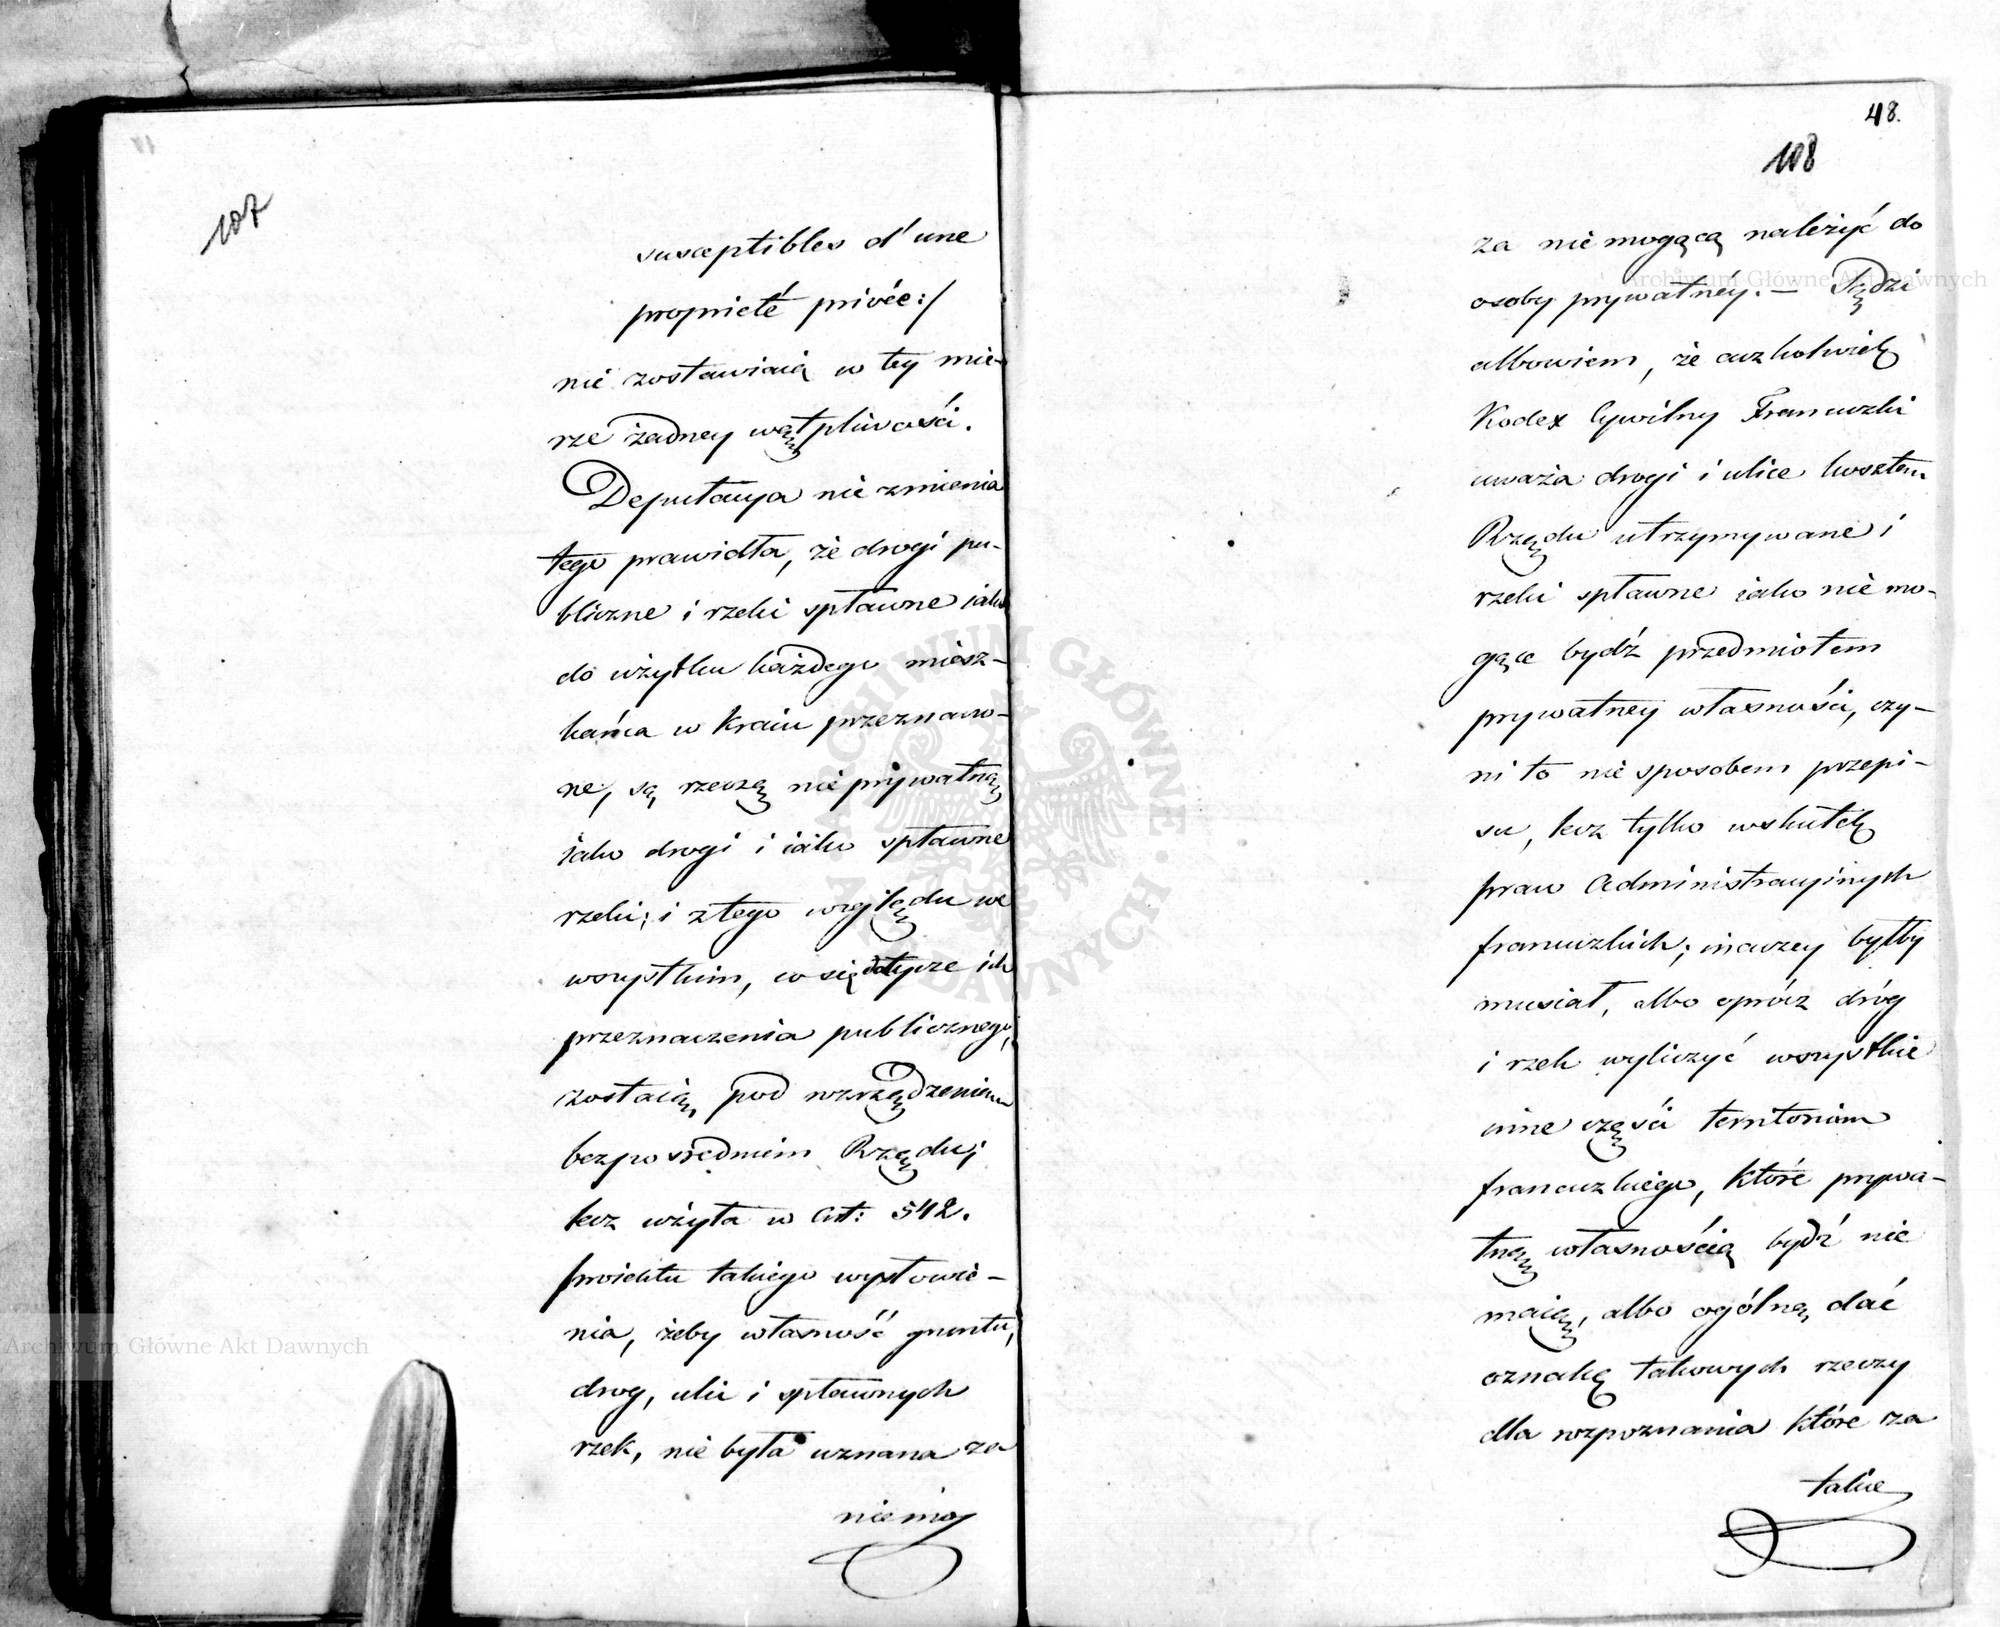 107
susceptibles d'une
proprieté privée:/
nie zostawiaią w tey mie-
rze żadney wątpliwości.
Deputacya nie zmienia
tego prawidła, że drogi pu-
bliczne i rzeki spławne iako
do użytku każdego miesz-
kańca w Kraiu przeznaczo-
ne, są rzeczą nie prywatną
iako drogi i iako spławne
rzeki; i z tego względu we
wszystkim, co się dotycze ich
przeznaczenia publicznego,
zostaią pod rozrządzeniem
bezpośrednim Rządu;
lecz użyła w Art: 542.
proiektu takiego wysłowie-
nia, żeby własność gruntu,
drog, ulic i spławnych
rzek, nie była uznana za
nie mog
48.
108
za nie mogącą należyć do
osoby prywatnéy. — Sądzi
albowiem, że aczkolwiek
Kodex Cywilny Francuzki
uważa drogi i ulice kosztem
Rządu utrzymywane i
rzeki spławne iako nie mo-
gące bydź przedmiotem
prywatney własności, czy-
ni to nie sposobem przepi-
su, lecz tylko wskutek
praw Administracyinych
francuzkich; inaczey byłby
musiał, albo oprócz dróg
i rzek wyliczyć wszystkie
inne części territorium
francuzkiego, które prywa-
tną własnością bydź nie
maią, albo ogólną dać
oznakę takowych rzeczy
dla rozpoznania które za
takie
Archiwum Główne Akt Dawnych
Archiwum Główne Akt Dawnych
ARCHIWUM GŁÓWNE AKT DAWNYCH